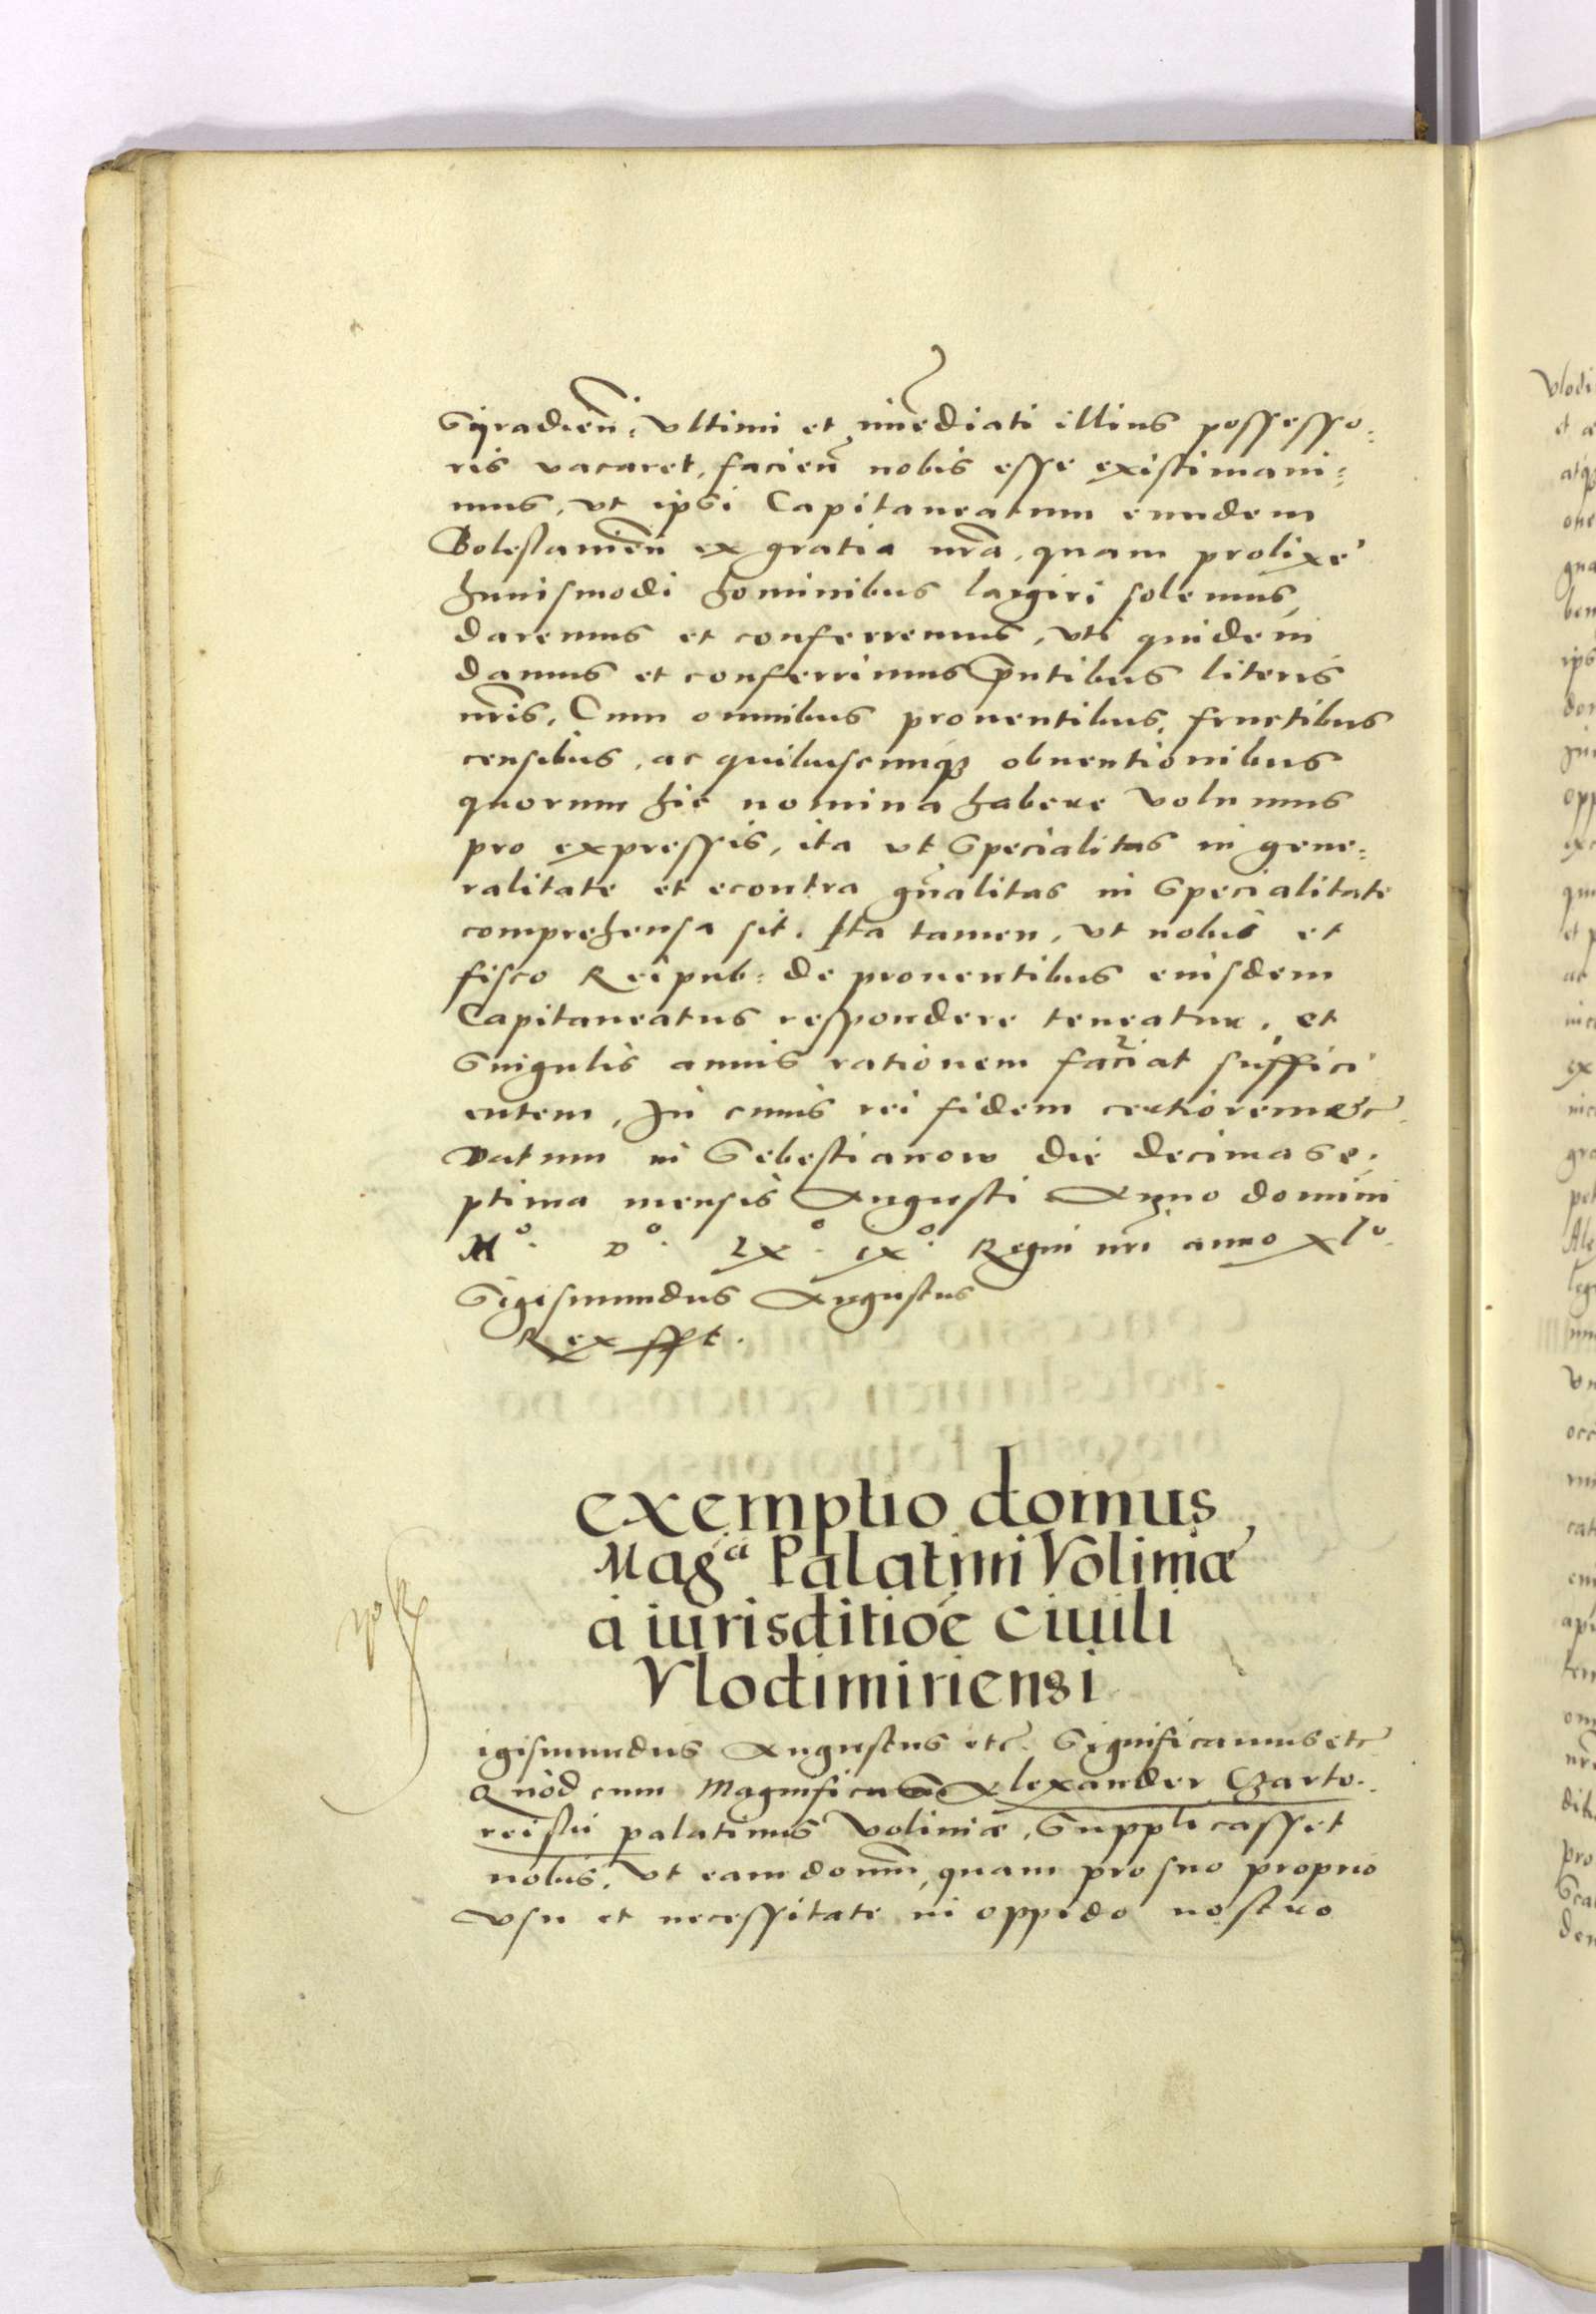 Syradien̄: vltimi et im̄ediati illius possesso:
ris vacaret, facien̄ nobis esse existimaui:
mus, vt ipsi Capitaneatum eundem
Bolestanien̄ ex gratia nrā, quam prolixè
huiusmodi hominibus largiri solemus,
daremus et conferremus, vti quidem
damus et conferrimus p̄ntibus literis
nr̄is, Cum omnibus prouentibus, fructibus
censibus, ac quibuscunqȝ obuentionibus
quorum hic nomina habere volumus
pro expressis, ita vt specialitas in gene:
ralitate et econtra gn̄alitas in specialitate
comprehensa sit. Ita tamen, vt nobis et
fisco Reipub: de prouentibus eiusdem
Capitaneatus respondere teneatur, et
singulis annis rationem faciat suffici
entem, In cuius rei fidem certiorem etc̄
Datum in Sebestianow die decima se:
ptima mensis Augusti Anno domini
Mᵒ. Dᵒ. LXᵒ. IXᵒ. Regni nr̄i anno XLᵒ.
Sigismundus Augustus
Rex sspt.
exemptio domus
Magᶜⁱ Palatini Voliniæ
à iurisditiōe ciuili
Vlodimiriensi
igismundus Augustus etc̄. Significamus etc̄
Quod cum Magnificus Alexander Czarto:
reiski palatinus Voliniæ, Supplicasset
nobis, vt eam domū, quam pro suo proprio
vsu et necessitate in oppido nostro